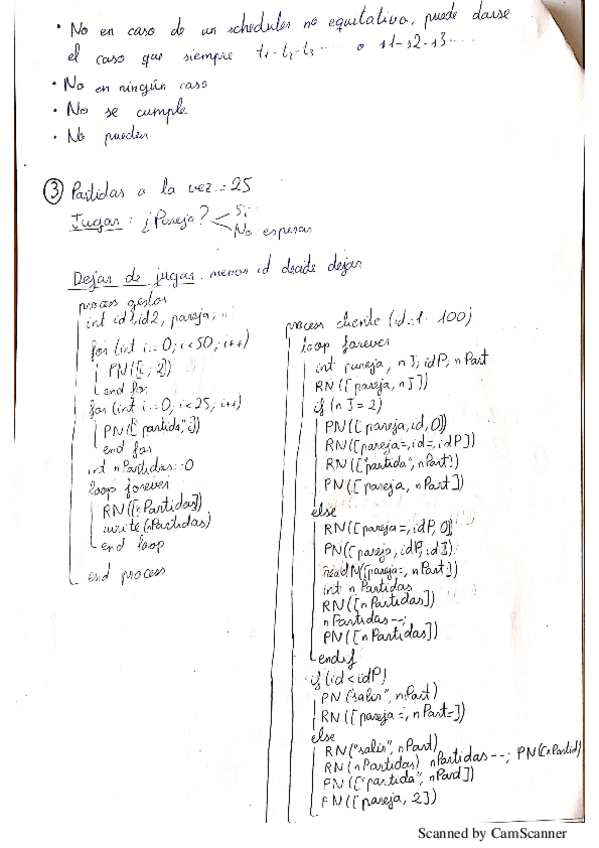 • No en caso de un scheduler no equitativo, puede darse
el caso que siempre t1-t2-t3.... o s1-s2-s3....
• No en ningún caso
• No se cumple
• No pueden
③ Partidas a la vez = 25
Jugar: ¿Pareja? Sí
No esperar
Dejar de jugar: menor id decide dejar
process gestor
int id1, id2, pareja,
for (int i=0; i<50; i++)
PN([i, 2])
end for
for (int i=0, i<25, i++)
PN(["partida", i])
end for
int nPartidas=0
loop forever
RN([nPartidas])
write(nPartidas)
end loop
end process
process cliente (id=1.. 100)
loop forever
int pareja, nJ, idP, nPart
RN([pareja, nJ])
if (nJ=2)
PN([pareja, id, 0])
RN([pareja=, id=, idP])
RN(["partida", nPart])
PN([pareja, nPart])
else
RN([pareja=, idP, 0])
PN([pareja, idP, id])
readN([pareja=, nPart])
int nPartidas
RN([nPartidas])
nPartidas--;
PN([nPartidas])
endif
if (id<idP)
PN("salir", nPart)
RN([pareja=, nPart=])
else
RN("salir", nPart)
RN(nPartidas) nPartidas--; PN(nPartid)
PN(["partida", nPart])
PN([pareja, 2])
Scanned by CamScanner